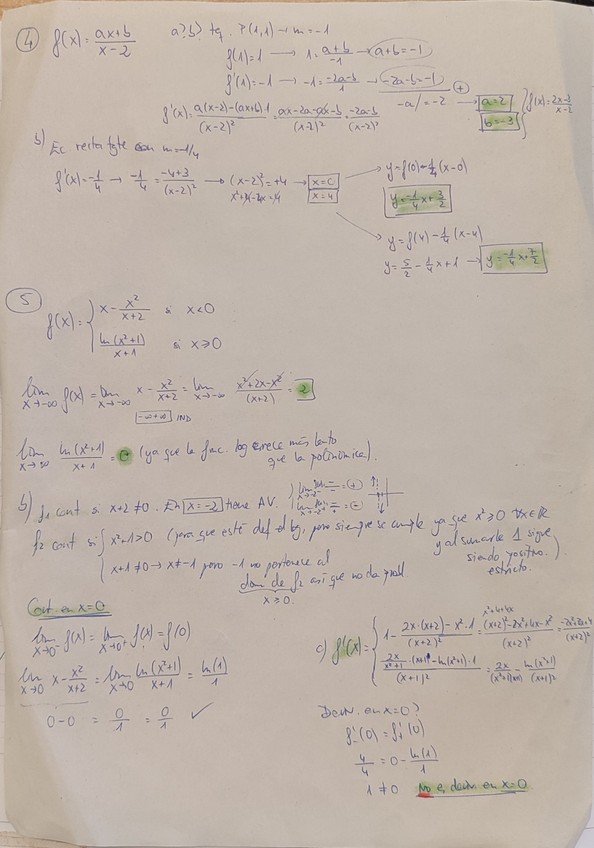 4) f(x) = (ax+b)/(x-2)  a?, b? tq. P(1,1) → m = -1
f(1)=1 → 1 = (a+b)/-1 → a+b=-1
f'(1)=-1 → -1 = (-2a-b)/1 → -2a-b=-1
-a/=-2 → a=2 b=-3 } f(x)= (2x-3)/(x-2)
f'(x)= (a(x-2)-(ax+b)·1)/(x-2)² = (ax-2a-ax-b)/(x-2)² = (-2a-b)/(x-2)²
b) Ec. recta tgte con m=-1/4
f'(x)=-1/4 → -1/4 = (-4+3)/(x-2)² → (x-2)²=+4 → x=0 x=4
y=f(0)-1/4(x-0)
y=-1/4x+3/2
y=f(4)-1/4(x-4)
y=5/2-1/4x+1 → y=-1/4x+7/2
5) f(x)= { x - x²/(x+2) si x<0
ln(x²+1)/(x+1) si x≥0
lim x→-∞ f(x) = lim x→-∞ x - x²/(x+2) = lim x→-∞ (x²+2x-x²)/(x+2) = 2
-∞+∞ IND
lim x→∞ ln(x²+1)/(x+1) = 0 (ya que la func. log crece más lento
que la polinómica).
b) f₁ cont si x+2≠0. En x=-2 tiene AV.
f₂ cont si { x²+1>0 (para que esté def el log, pero siempre se cumple ya que x²≥0 ∀x∈ℝ
y al sumarle 1 sigue
siendo positivo.
estricto.)
x+1≠0 → x≠-1 pero -1 no pertenece al
dom de f₂ así que no da probl.
x≥0.
Cont. en x=0
lim x→0⁻ f(x) = lim x→0⁺ f(x) = f(0)
lim x→0 x - x²/(x+2) = lim x→0 ln(x²+1)/(x+1) = ln(1)/1
0-0 = 0/1 = 0/1 ✓
c) f'(x)= { 1 - (2x·(x+2)-x²·1)/(x+2)²
Deriv. en x=0?
f'₋(0) = f'₊(0)
4/4 = 0 - ln(1)/1
1≠0 No es deriv en x=0